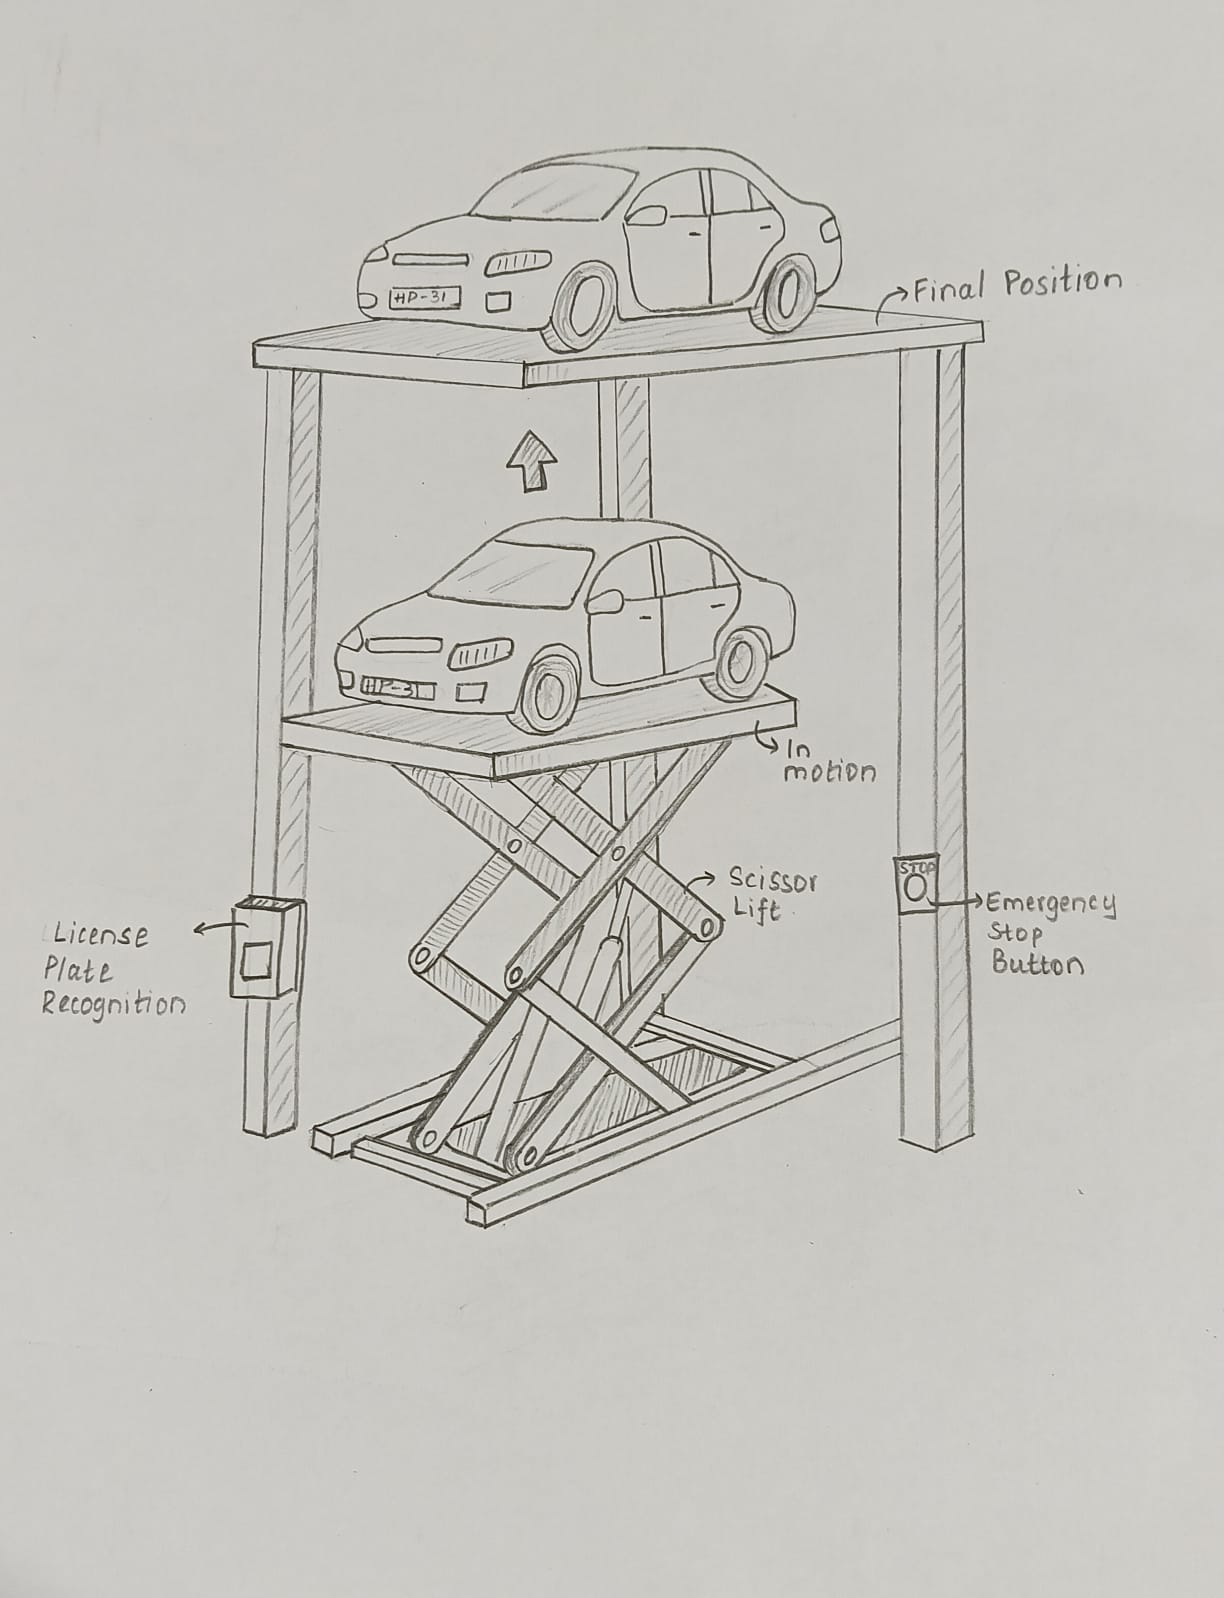 HP-31
Final Position
HP-31
In
motion
Scissor
Lift
STOP
Emergency
Stop
Button
License
Plate
Recognition